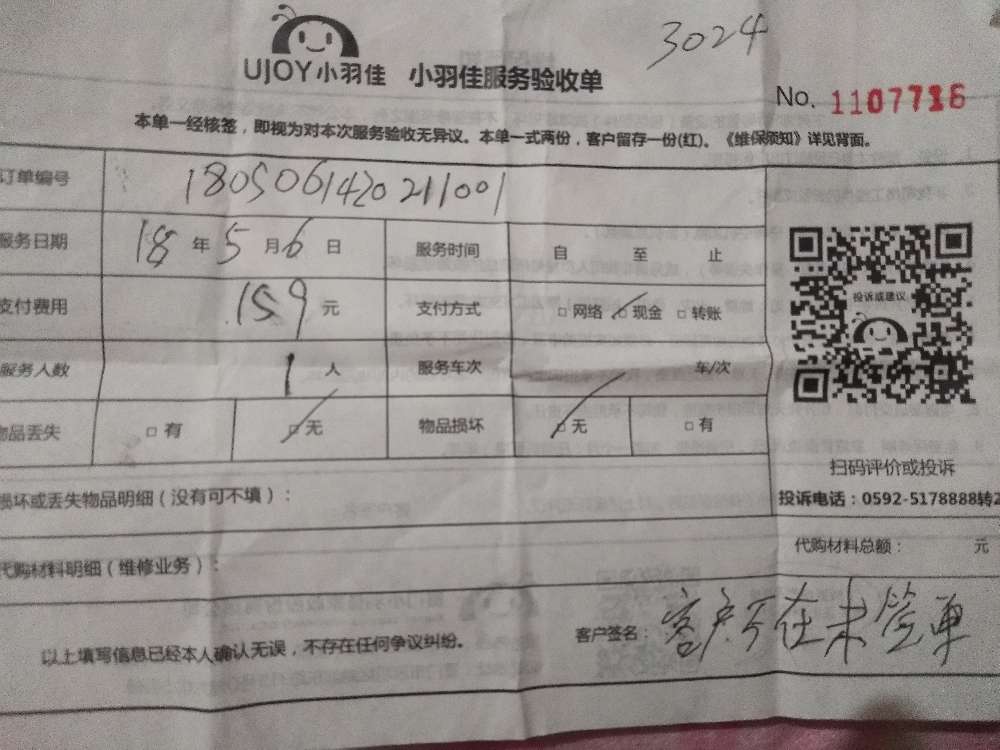 3024
UJOY小羽佳 小羽佳服务验收单
No. 1107716
本单一经核签，即视为对本次服务验收无异议。本单一式两份，客户留存一份(红)。《维保须知》详见背面。
订单编号 180506142021001
服务日期 18 年 5 月 6 日 服务时间 自 至 止
支付费用 159 元 支付方式 □网络 □现金 □转账
投诉或建议
服务人数 1 人 服务车次 车/次
物品丢失 □有 □无 物品损坏 □无 □有
扫码评价或投诉
损坏或丢失物品明细（没有可不填）：
投诉电话：0592-5178888转2
代购材料明细（维修业务）：
代购材料总额： 元
以上填写信息已经本人确认无误，不存在任何争议纠纷。
客户签名：客户不在未签单